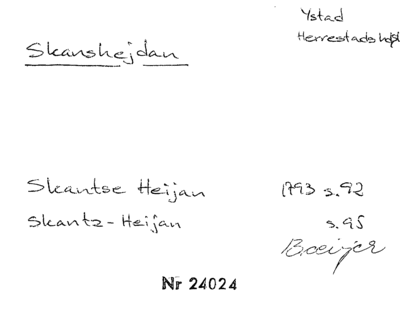 Ystad
Skanshejdan
Herrestads hd
Skantse Heijan 1793 s.92
Skantz-Heijan s.95
Boeijer
Nr 24024